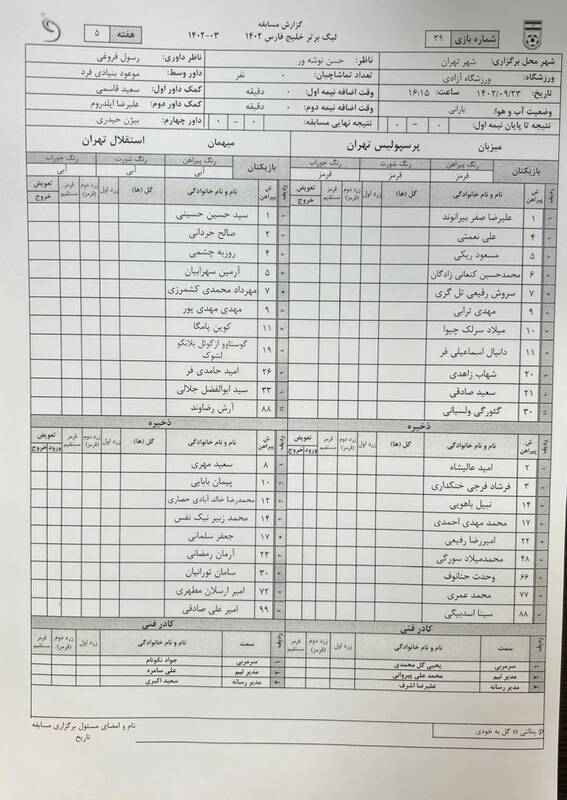 گزارش مسابقه
لیگ برتر خلیج فارس ۱۴۰۲ ۰۳-۱۴۰۲
شماره بازی ۳۹
هفته ۵
شهر محل برگزاری: شهر تهران ناظر: حسن نوشه ور ناظر داوری: رسول فروغی
ورزشگاه: ورزشگاه آزادی تعداد تماشاچیان: ۰ نفر داور وسط: موعود بنیادی فرد
تاریخ: ۱۴۰۲/۰۹/۲۳ ساعت: ۱۶:۱۵ وقت اضافه نیمه اول: ۰ دقیقه کمک داور اول: سعید قاسمی
وضعیت آب و هوا: بارانی وقت اضافه نیمه دوم: ۰ دقیقه کمک داور دوم: علیرضا ایلدروم
نتیجه تا پایان نیمه اول: ۰ - ۰ نتیجه نهایی مسابقه: ۰ - ۰ داور چهارم: بیژن حیدری
میزبان پرسپولیس تهران
بازیکنان رنگ پیراهن رنگ شورت رنگ جوراب
قرمز قرمز قرمز
ردیف ش پیراهن نام و نام خانوادگی گل (ها) زرد اول زرد دوم (قرمز) قرمز مستقیم تعویض خروج
۱ علیرضا صفر بیرانوند
۴ علی نعمتی
۵ مسعود ریگی
۶ محمدحسین کنعانی زادگان
۷ سروش رفیعی تل گری
۹ مهدی ترابی
۱۰ میلاد سرلک چیوا
۱۱ دانیال اسماعیلی فر
۲۰ شهاب زاهدی
۲۱ سعید صادقی
۳۰ گئورگی ولسیانی
ذخیره
ردیف ش پیراهن نام و نام خانوادگی گل (ها) زرد اول زرد دوم (قرمز) قرمز مستقیم تعویض ورود خروج
۲ امید عالیشاه
۳ فرشاد فرجی خنکداری
۱۴ نبیل باهویی
۱۷ محمد مهدی احمدی
۲۲ امیررضا رفیعی
۴۸ محمدمیلاد سورگی
۶۶ وحدت حنانوف
۷۷ محمد عمری
۸۸ سینا اسدبیگی
کادر فنی
ردیف سمت نام و نام خانوادگی زرد اول زرد دوم (قرمز) قرمز مستقیم
۱ سرمربی یحیی گل محمدی
۲ مدیر تیم محمد علی پیروانی
۳ مدیر رسانه علیرضا اشرف
میهمان استقلال تهران
بازیکنان رنگ پیراهن رنگ شورت رنگ جوراب
آبی آبی آبی
ردیف ش پیراهن نام و نام خانوادگی گل (ها) زرد اول زرد دوم (قرمز) قرمز مستقیم تعویض خروج
۱ سید حسین حسینی
۲ صالح حردانی
۴ روزبه چشمی
۵ آرمین سهرابیان
۷ مهرداد محمدی کشمرزی
۹ مهدی مهدی پور
۱۱ کوین یامگا
۱۹ گوستاوو ازکوئل بلانکو لشوک
۲۶ امید حامدی فر
۳۳ سید ابوالفضل جلالی
۸۸ آرش رضاوند
ذخیره
ردیف ش پیراهن نام و نام خانوادگی گل (ها) زرد اول زرد دوم (قرمز) قرمز مستقیم تعویض ورود خروج
۸ سعید مهری
۱۰ پیمان بابایی
۱۲ محمدرضا خالد آبادی حصاری
۱۴ محمد زبیر نیک نفس
۱۷ جعفر سلمانی
۲۳ آرمان رمضانی
۳۰ سامان تورانیان
۷۲ امیر ارسلان مطهری
۹۹ امیر علی صادقی
کادر فنی
ردیف سمت نام و نام خانوادگی زرد اول زرد دوم (قرمز) قرمز مستقیم
۱ سرمربی جواد نکونام
۲ مدیر تیم علی سامره
۳ مدیر رسانه سعید اکبری
p پنالتی o گل به خودی
نام و امضای مسئول برگزاری مسابقه
تاریخ